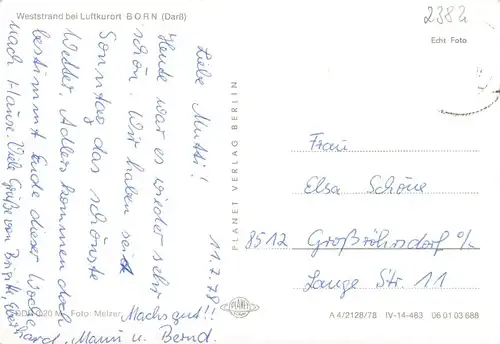 Weststrand bei Luftkurort BORN (Darß)
2382
Echt Foto
11.7.78
Liebe Mutti!
Heute war es wieder sehr
schön. Wir haben seit
Sonntag das schönste
Wetter. Adlers kommen doch
bestimmt Ende dieser Woche
nach Hause. Viele Grüße von Brigitte, Eberhard,
Mann u. Bernd.
Machs gut!!
PLANET VERLAG BERLIN
PLANET
Frau
Elsa Schöne
8512 Großröhrsdorf o/L
Lange Str. 11
Foto: Melzer
A 4/2128/78 IV-14-483 06 01 03 688